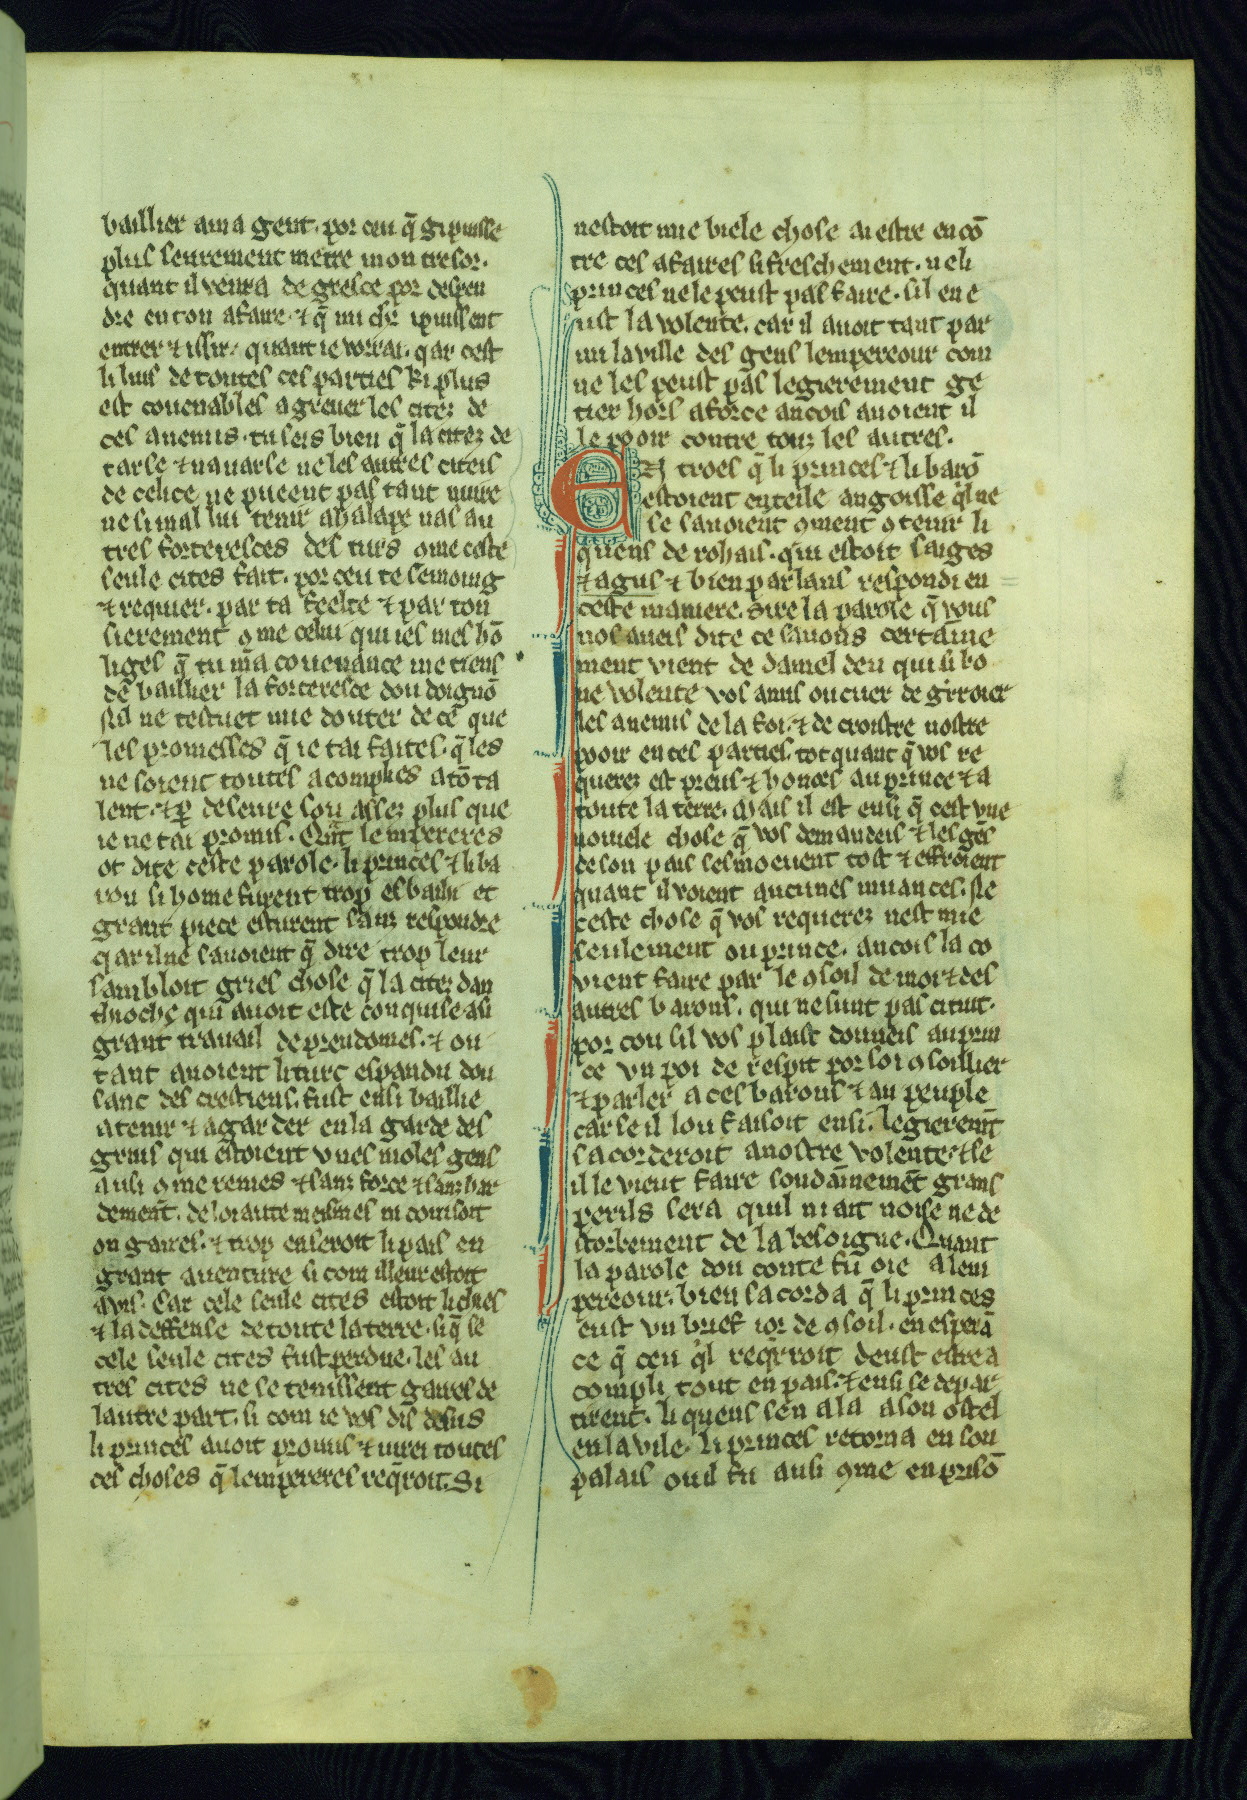 baillier a ma gent. por ceu q̄ gi puisse
plus seurement metre mon tresor.
quant il venra de gresce por despen
dre en ton afaire. ⁊ q̄ mi ch̄r i puissent
entrer ⁊ issir. quant ie vorrai. qar cest
li luis de toutes ces parties ki plus
est couenables a greuer les citez de
ces anemis. tu seis bien q̄ la citez de
tarse ⁊ nauarse ne les autres citeis
de celice ne pueent pas tant nuire
ne si mal lui tenir a halape nas au
tres forteresces des turs ꝯme ceste
seule cites fait. por ceu te semoing
⁊ requier. par ta feelte ⁊ par ton
sierement ꝯme celui qui ies mes hō
liges q̄ tu ma couenance me tiens
de baillier la forteresce dou doignō
si il ne testuet mie douter de ce que
les promesses q̄ ie tai faites. q̄ les
ne soient toutes acomplies a tō ta
lent. ⁊ p̄ deseure son assez plus que
ie ne tai promis. Qn̄t lempereres
ot dite ceste parole. li princes ⁊ li ba
ron si home furent trop esbahi et
grant piece esturent sanz respondre
qar il ne sauoient q̄ dire trop leur
sambloit gries chose q̄ la citez dan
thioche qui auoit este conquise a si
grant trauail de preudomes. ⁊ ou
tant auoient li turc espandu dou
sanc des crestiens. fust ensi baillie
a tenir ⁊ a garder en la garde des
grius qui estoient vnes moles gens
ausi ꝯme femes ⁊ sanz force ⁊ sanz har
dement. de loiaute meismes ni couisoit
on gaires. ⁊ trop en seroit li pais en
grant auenture si com il leur estoit
auis. Car cele seule cites estoit li chies
⁊ la deffense de toute la terre. si q̄ se
cele seule cites fust perdue. les au
tres cites ne se tenissent gaires de
lautre part. si com ie vos dis desus
li princes auoit promis ⁊ iurei toutes
ces choses q̄ lempereres reqroit. Si
nestoit mie biele chose a iestre encō
tre ces afaires si freschement. ne li
princes ne le peust pas faire. sil en e
ust la volente. car il auoit tant par
mi la ville des gens lempereour com
ne les peust pas legierement ge
tier hors a force ancois auoient il
le pooir contre touz les autres.
En troes q̄ li princes ⁊ li barō
estoient en teile angoisse qil ne
se sauoient ꝯment ꝯtenir li
quens de rohais. qui estoit saiges
⁊ agus ⁊ bien parlans respondi en
ceste maniere. Sire la parole q̄ vous
nos aueis dite ce sauons certaine
ment vient de damel deu qui si bo
ne volente vos a mis ou cuer de girroier
les anemis de la foi. ⁊ de croistre nostre
pooir en ces parties. tot quant q̄ vos re
querez est preus ⁊ honors au prince ⁊ a
toute la terre. Mais il est ensi q̄ cest vne
nouuele chose q̄ vos demandeis ⁊ les gēs
de son pais sesmoeuent tost ⁊ effroient
quant il voient aucunes muances. Ne
ceste chose q̄ vos requerez nest mie
seulement ou prince. ancois la co
uient faire par le ꝯsoil de moi ⁊ des
autres barons. qui ne sunt pas ci tuit.
por cou sil vos plaist donneis au prin
ce vn poi de respit por soi ꝯsoillier
⁊ parler a ces barons ⁊ au peuple
car se il lou faisoit ensi. legierem̄t
sacorderoit a nostre volente. ⁊ se
il le vient faire soudainemēt grans
perils sera quil ni ait noise ne de
storbement de la besoigne. Quant
la parole dou conte fu oie a lem
pereour. bien sacorda q̄ li princes
eust vn brief ior de ꝯsoil. en esperā
ce q̄ ceu qil reqrroit deust estre a
compli tout en pais. ⁊ ensi se depar
tirent. li quens sen ala a son ostel
en la vile. li princes retorna en son
palais ou il fu ausi ꝯme en prisō